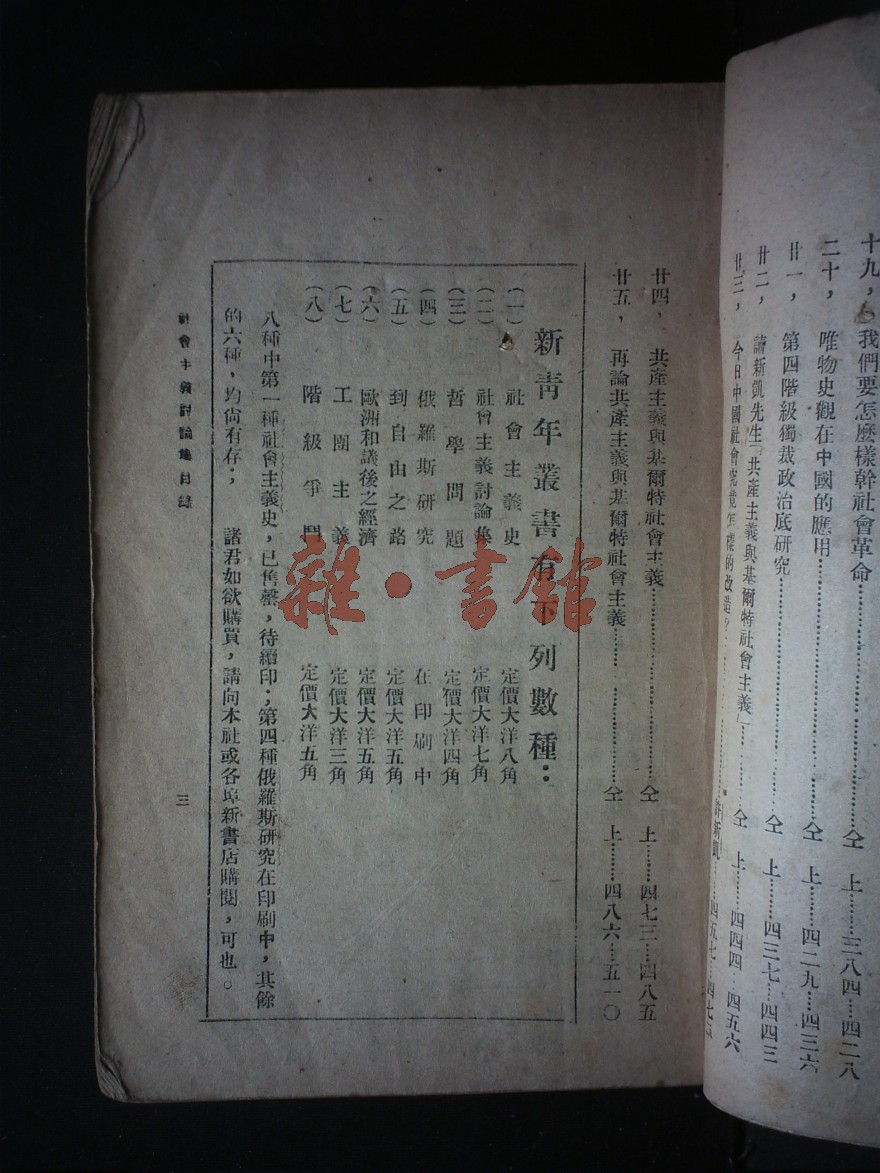 十九，我們要怎麼樣幹社會革命……仝 上……三八四……四二八
二十，唯物史觀在中國的應用……仝 上……四二九……四三六
廿一，第四階級獨裁政治底研究……仝 上……四三七……四四三
廿二，讀新凱先生「共產主義與基爾特社會主義」……仝 上……四四四……四五六
廿三，今日中國社會究竟怎樣的改造？……許新凱……四五七……四七三
廿四，共產主義與基爾特社會主義……仝 上……四七三……四八五
廿五，再論共產主義與基爾特社會主義……仝 上……四八六……五一〇
新靑年叢書有下列數種：
(一) 社會主義史 定價大洋八角
(二) 社會主義討論集 定價大洋七角
(三) 哲學問題 定價大洋四角
(四) 俄羅斯研究 在印刷中
(五) 到自由之路 定價大洋五角
(六) 歐洲和議後之經濟 定價大洋五角
(七) 工團主義 定價大洋三角
(八) 階級爭鬥 定價大洋五角
八種中第一種社會主義史，已售罄，待續印；第四種俄羅斯研究在印刷中，其餘
的六種，均尙有存； 諸君如欲購買，請向本社或各埠新書店購閱，可也。
社會主義討論集目錄
三
雜·書館